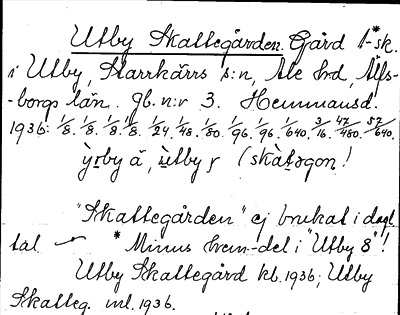 Utby Skattegården. Gård 1*sk.
i Utby, Starrkärrs s:n, Ale hd, Älfs-
-borgs län. Jb. n:r 3. Hemmansd.
1936: 1/8. 1/8. 1/8. 1/8. 1/24. 1/48. 1/80. 1/96. 1/96. 1/640. 3/16. 47/480. 57/640.
"Skattegården" ej brukat i dagl
tal. * Minus hem-del i "Utby 8"!
Utby Skattegård kb. 1936; Utby
Skatteg. ml. 1936.